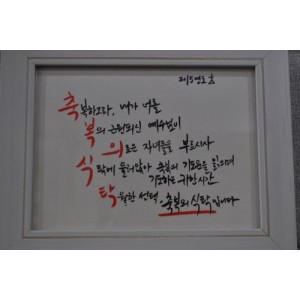 제15영도홈
축복하노라, 내가 너를
복의 근원되신 예수님이
의로운 자녀들을 부르시사
식탁에 둘러앉아 축복의 기도문을 읽으며
기도하는 귀한시간
탁월한 선택, 축복의 식탁입니다